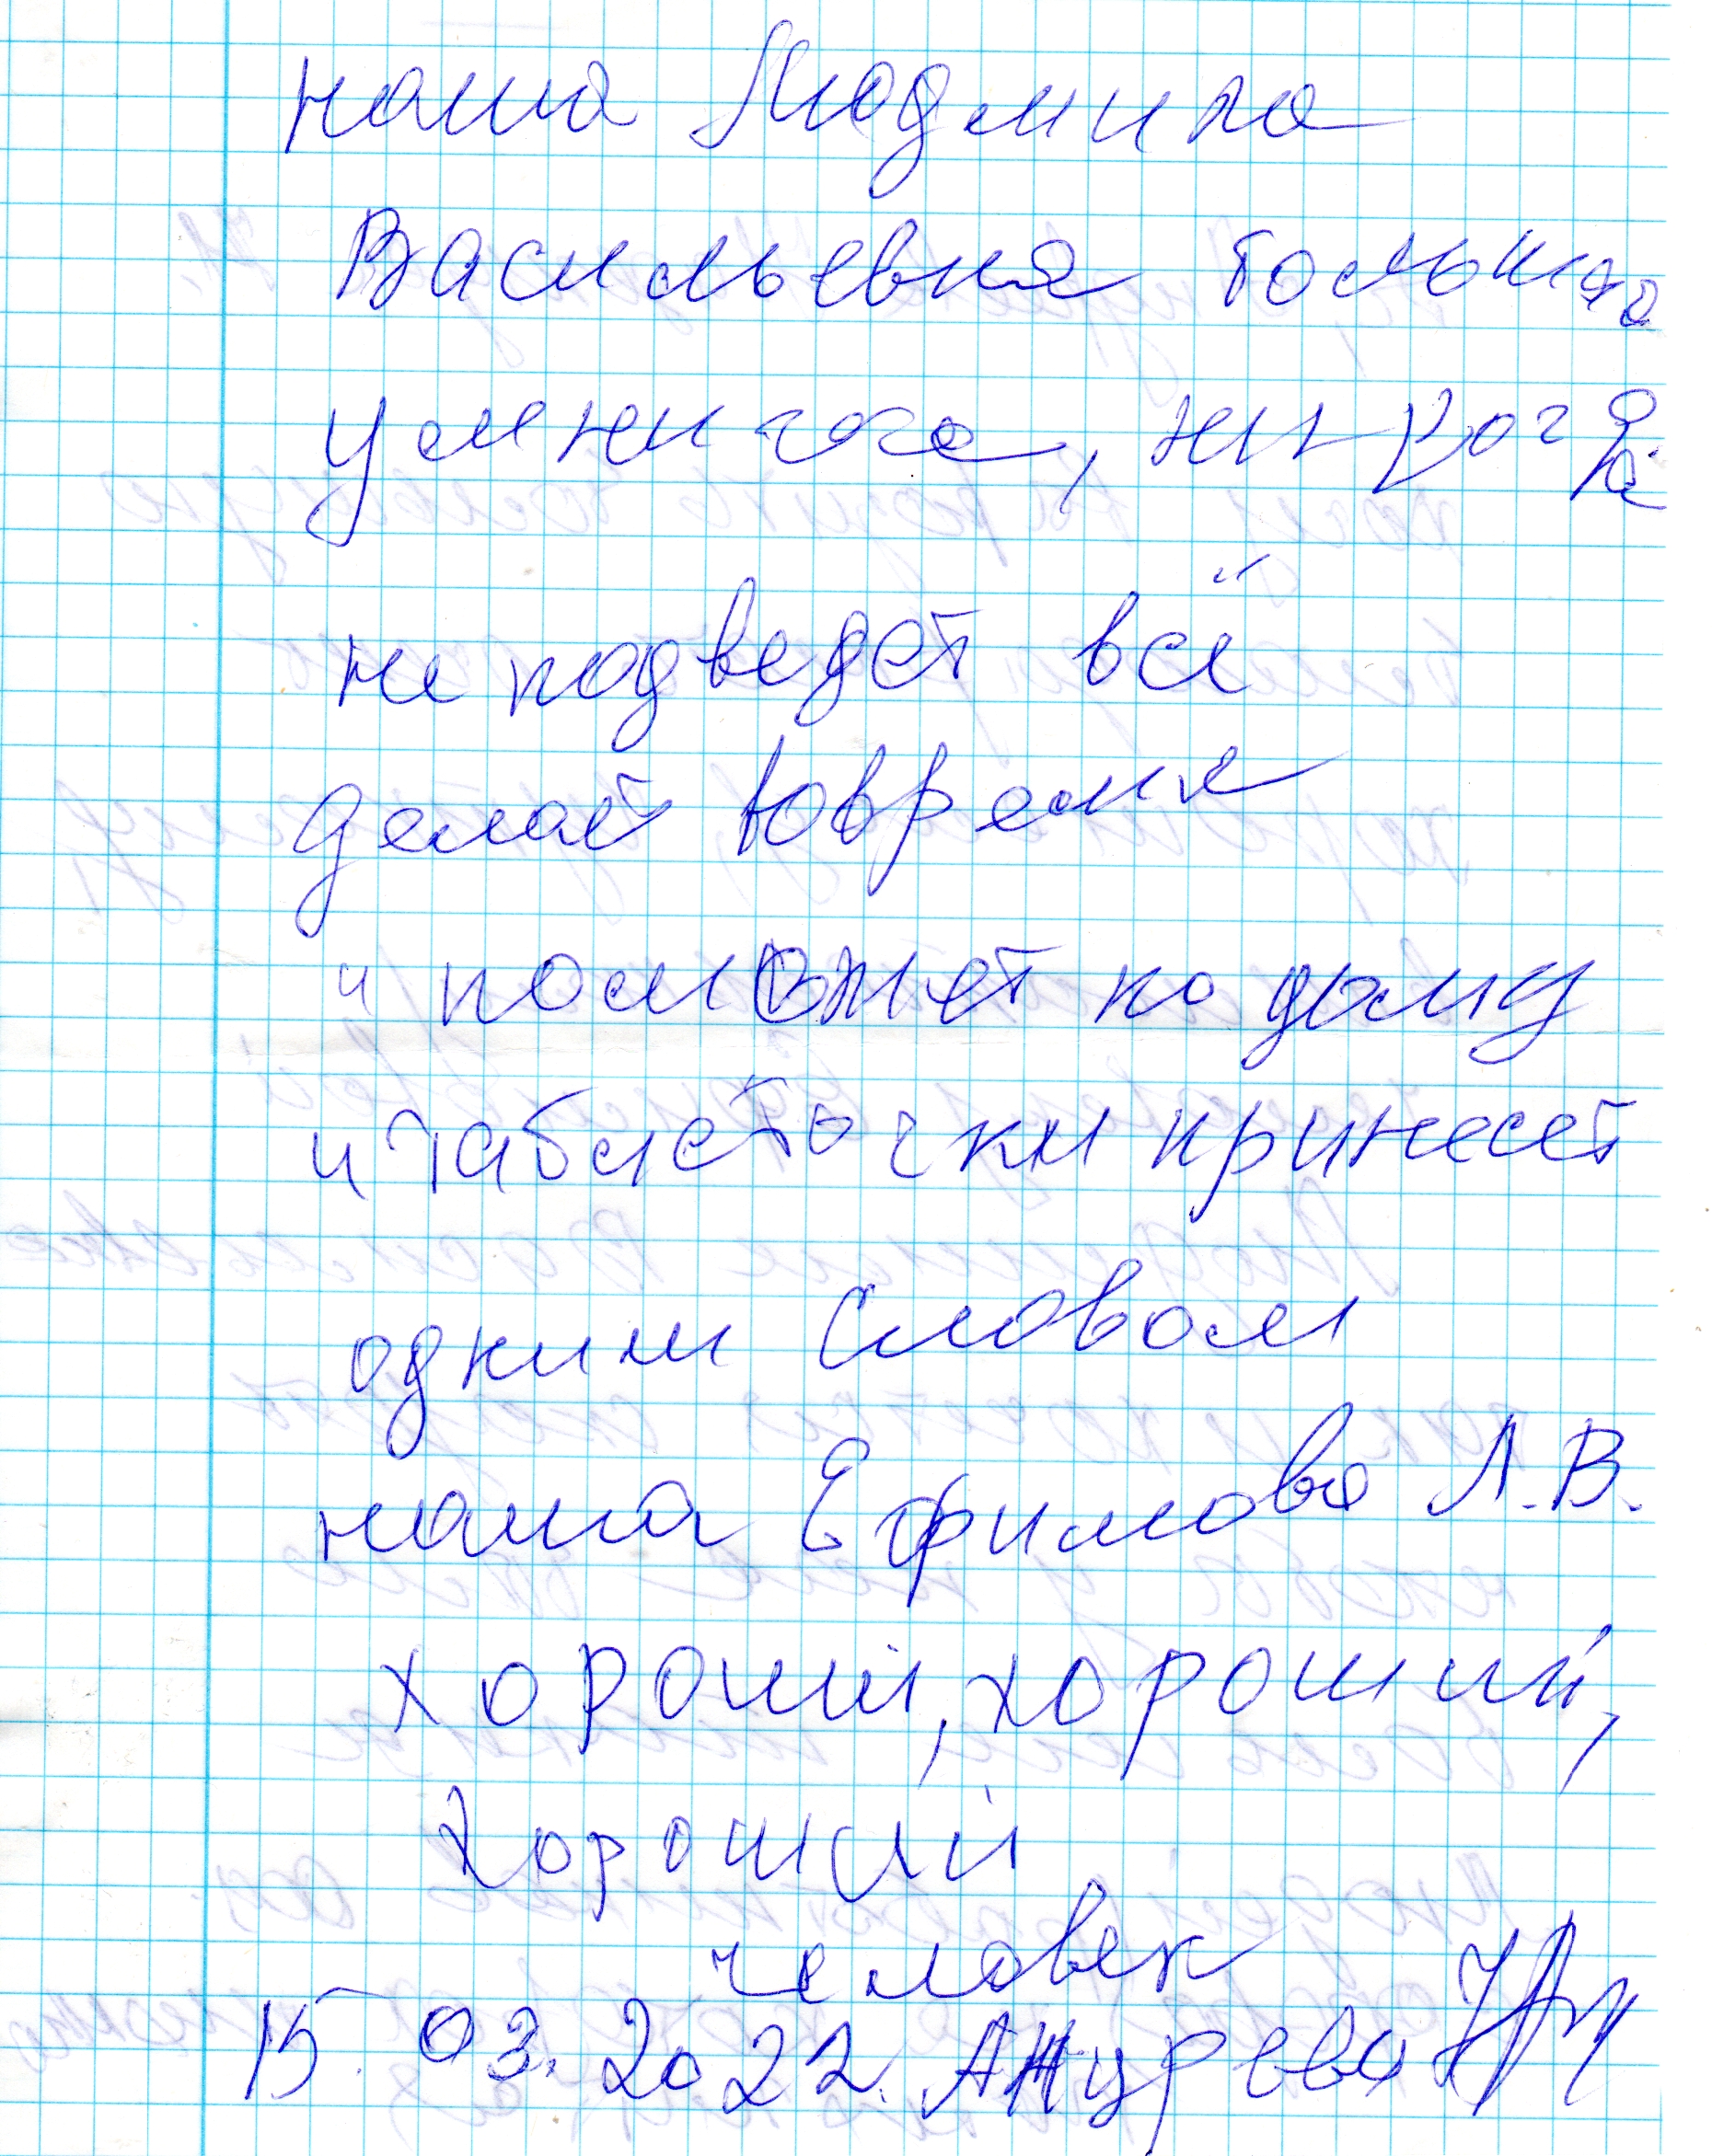 наша Людмила
Васильевна только
умничка, никогда
не подведет всё
делает вовремя
и поможет по дому
и таблеточки принесет
одним словом
наша Ефимова Л.В.
хороший, хороший,
хороший
человек
15.03.2022.